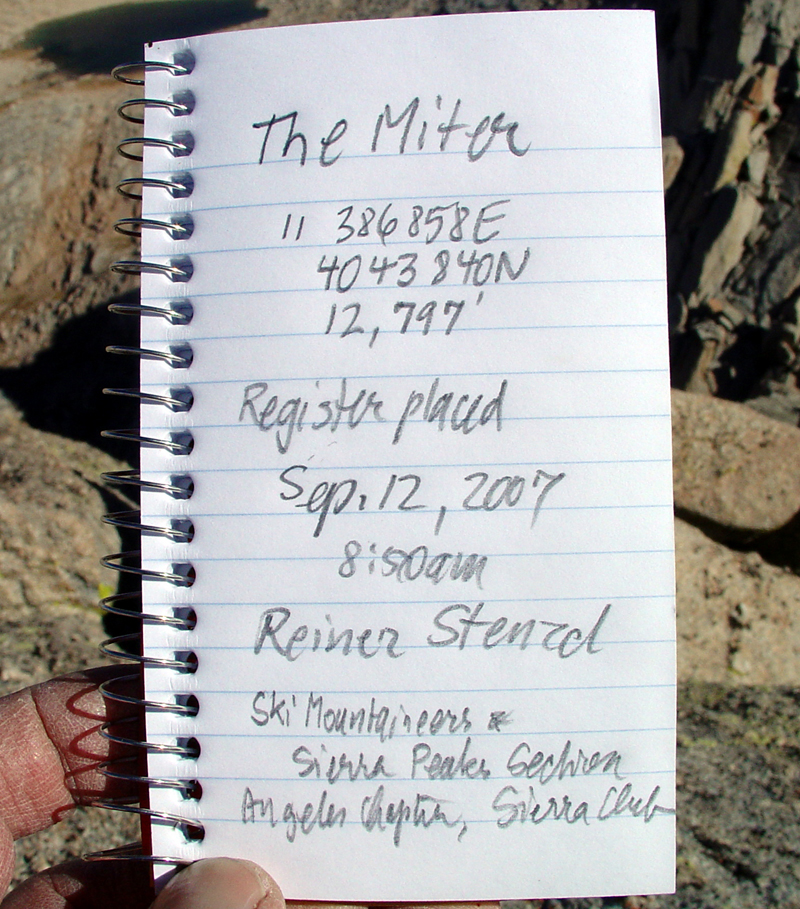 The Miter
11 386858E
4043840N
12,797'
Register placed
Sep. 12, 2007
8:50am
Reiner Stenzel
Ski Mountaineers &
Sierra Peaks Section
Angeles Chapter, Sierra Club